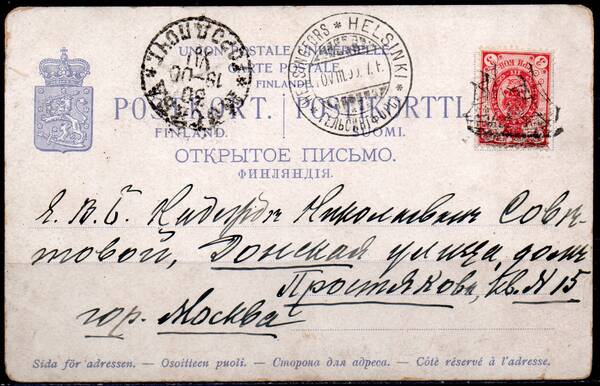 UNION POSTALE UNIVERSELLE.
CARTE POSTALE
FINLANDE.
POSTKORT. POSTIKORTTI.
FINLAND. SUOMI.
ОТКРЫТОЕ ПИСЬМО.
ФИНЛЯНДІЯ.
HELSINGFORS * HELSINKI *
Е. В. Б. Надежде Николаевне Совѣ-
товой, Донская улица, домъ
Простякова, кв. N 15
гор. Москва
Sida för adressen. — Osoitteen puoli. — Сторона для адреса. — Côté réservé à l'adresse.